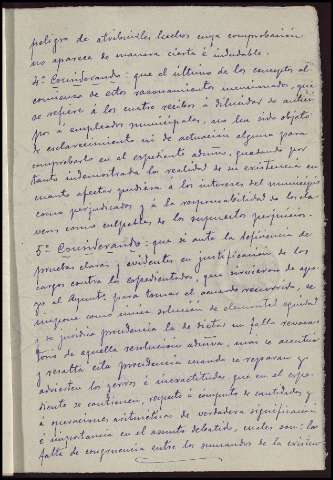 peligro de atribuirles hechos cuya comprobación
no aparece de manera cierta é indudable.
4º Considerando: que el último de los conceptos al
comienzo de estos razonamientos enumerados, que
se refiere á los cuatro recibos á dilucidar de antici
pos á empleados municipales, no ha sido objeto
de esclarecimiento ni de actuación alguna para
comprobarlo en el expediente admvo, quedando por
tanto indemostrada la realidad de su existencia en
cuanto afectar pudiera á los intereses del municipio
como perjudicados y á la responsabilidad de los cla
veros como culpables de los supuestos perjuicios.
5º Considerando: que si ante la deficiencia de
pruebas claras y evidentes en justificación de los
cargos contra los expedientados, que sirvieron de apo
yo al Aynto. para tomar el acuerdo recurrido, se
impone como única solución de elemental equidad
y de jurídica procedencia la de dictar un fallo revoca
torio de aquella resolución admva, mas se acentúa
y resalta esta procedencia cuando se reparan y
advierten los yerros é inexactitudes que en el expe
diente se contienen, respecto á computo de cantidades y
á operaciones aritméticas de verdadera significación
é importancia en el asunto debatido, cuales son: la
falta de congruencia entre los sumandos de la existen